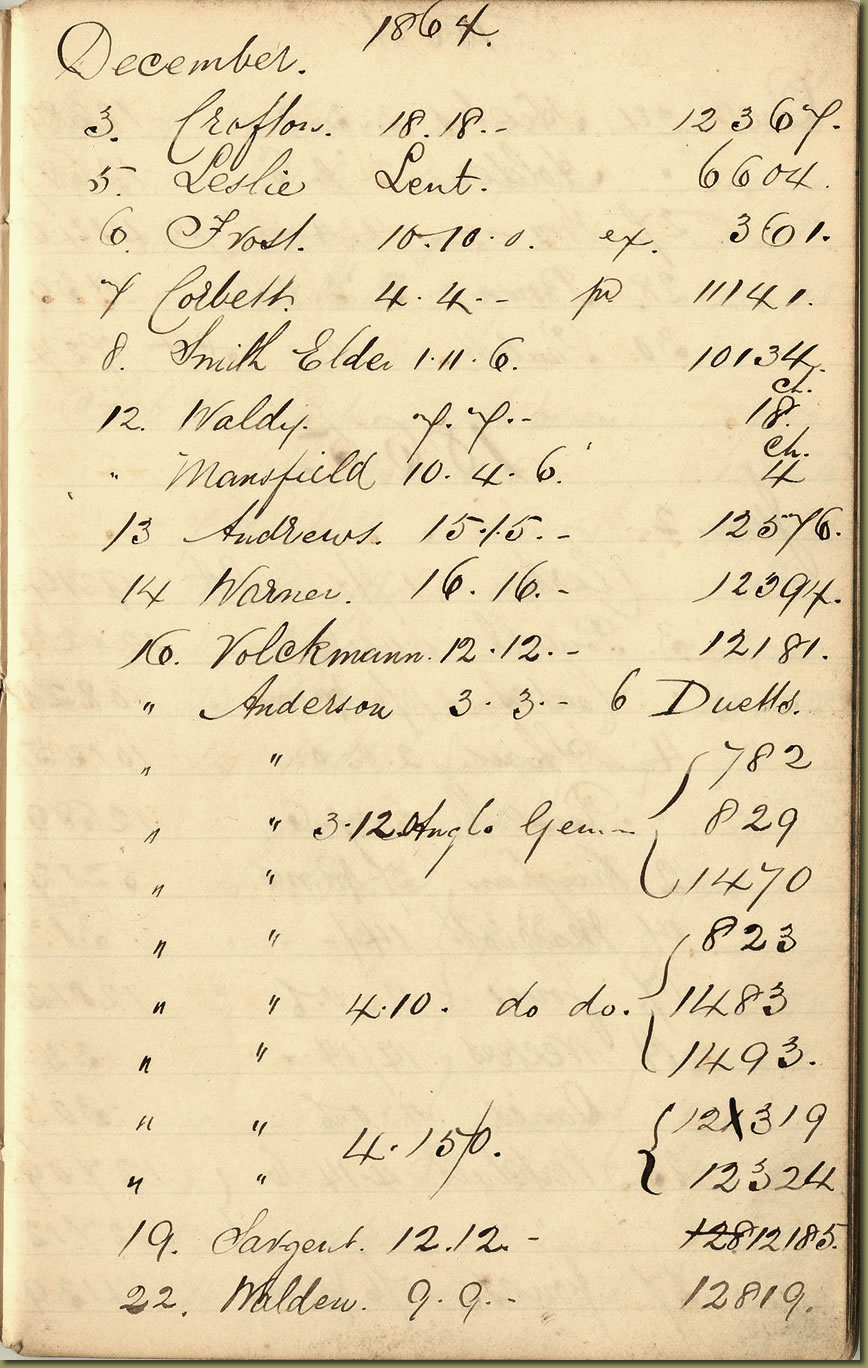 1864.
December.
3. Crafton. 18.18.- 12367.
5. Leslie Lent. 6604.
6. Frost. 10.10.0. ex. 361.
7 Corbett. 4.4.- pr 11141.
8. Smith Elder 1.11.6. 10134.
12. Waldy. 7.7.- ch. 18.
" Mansfield 10.4.6. ch. 4
13 Andrews. 15.15.- 12576.
14 Warner. 16.16.- 12394.
16. Volckmann. 12.12.- 12181.
" Anderson 3.3.- 6 Duetts.
" " 782
" " 3.12. Anglo Gem- 829
" " 1470
" " 823
" " 4.10. do do. 1483
" " 1493.
" " 12319
4.15/0.
" " 12324
19. Sargent. 12.12.- 128 12185.
22. Walden. 9.9.- 12819.